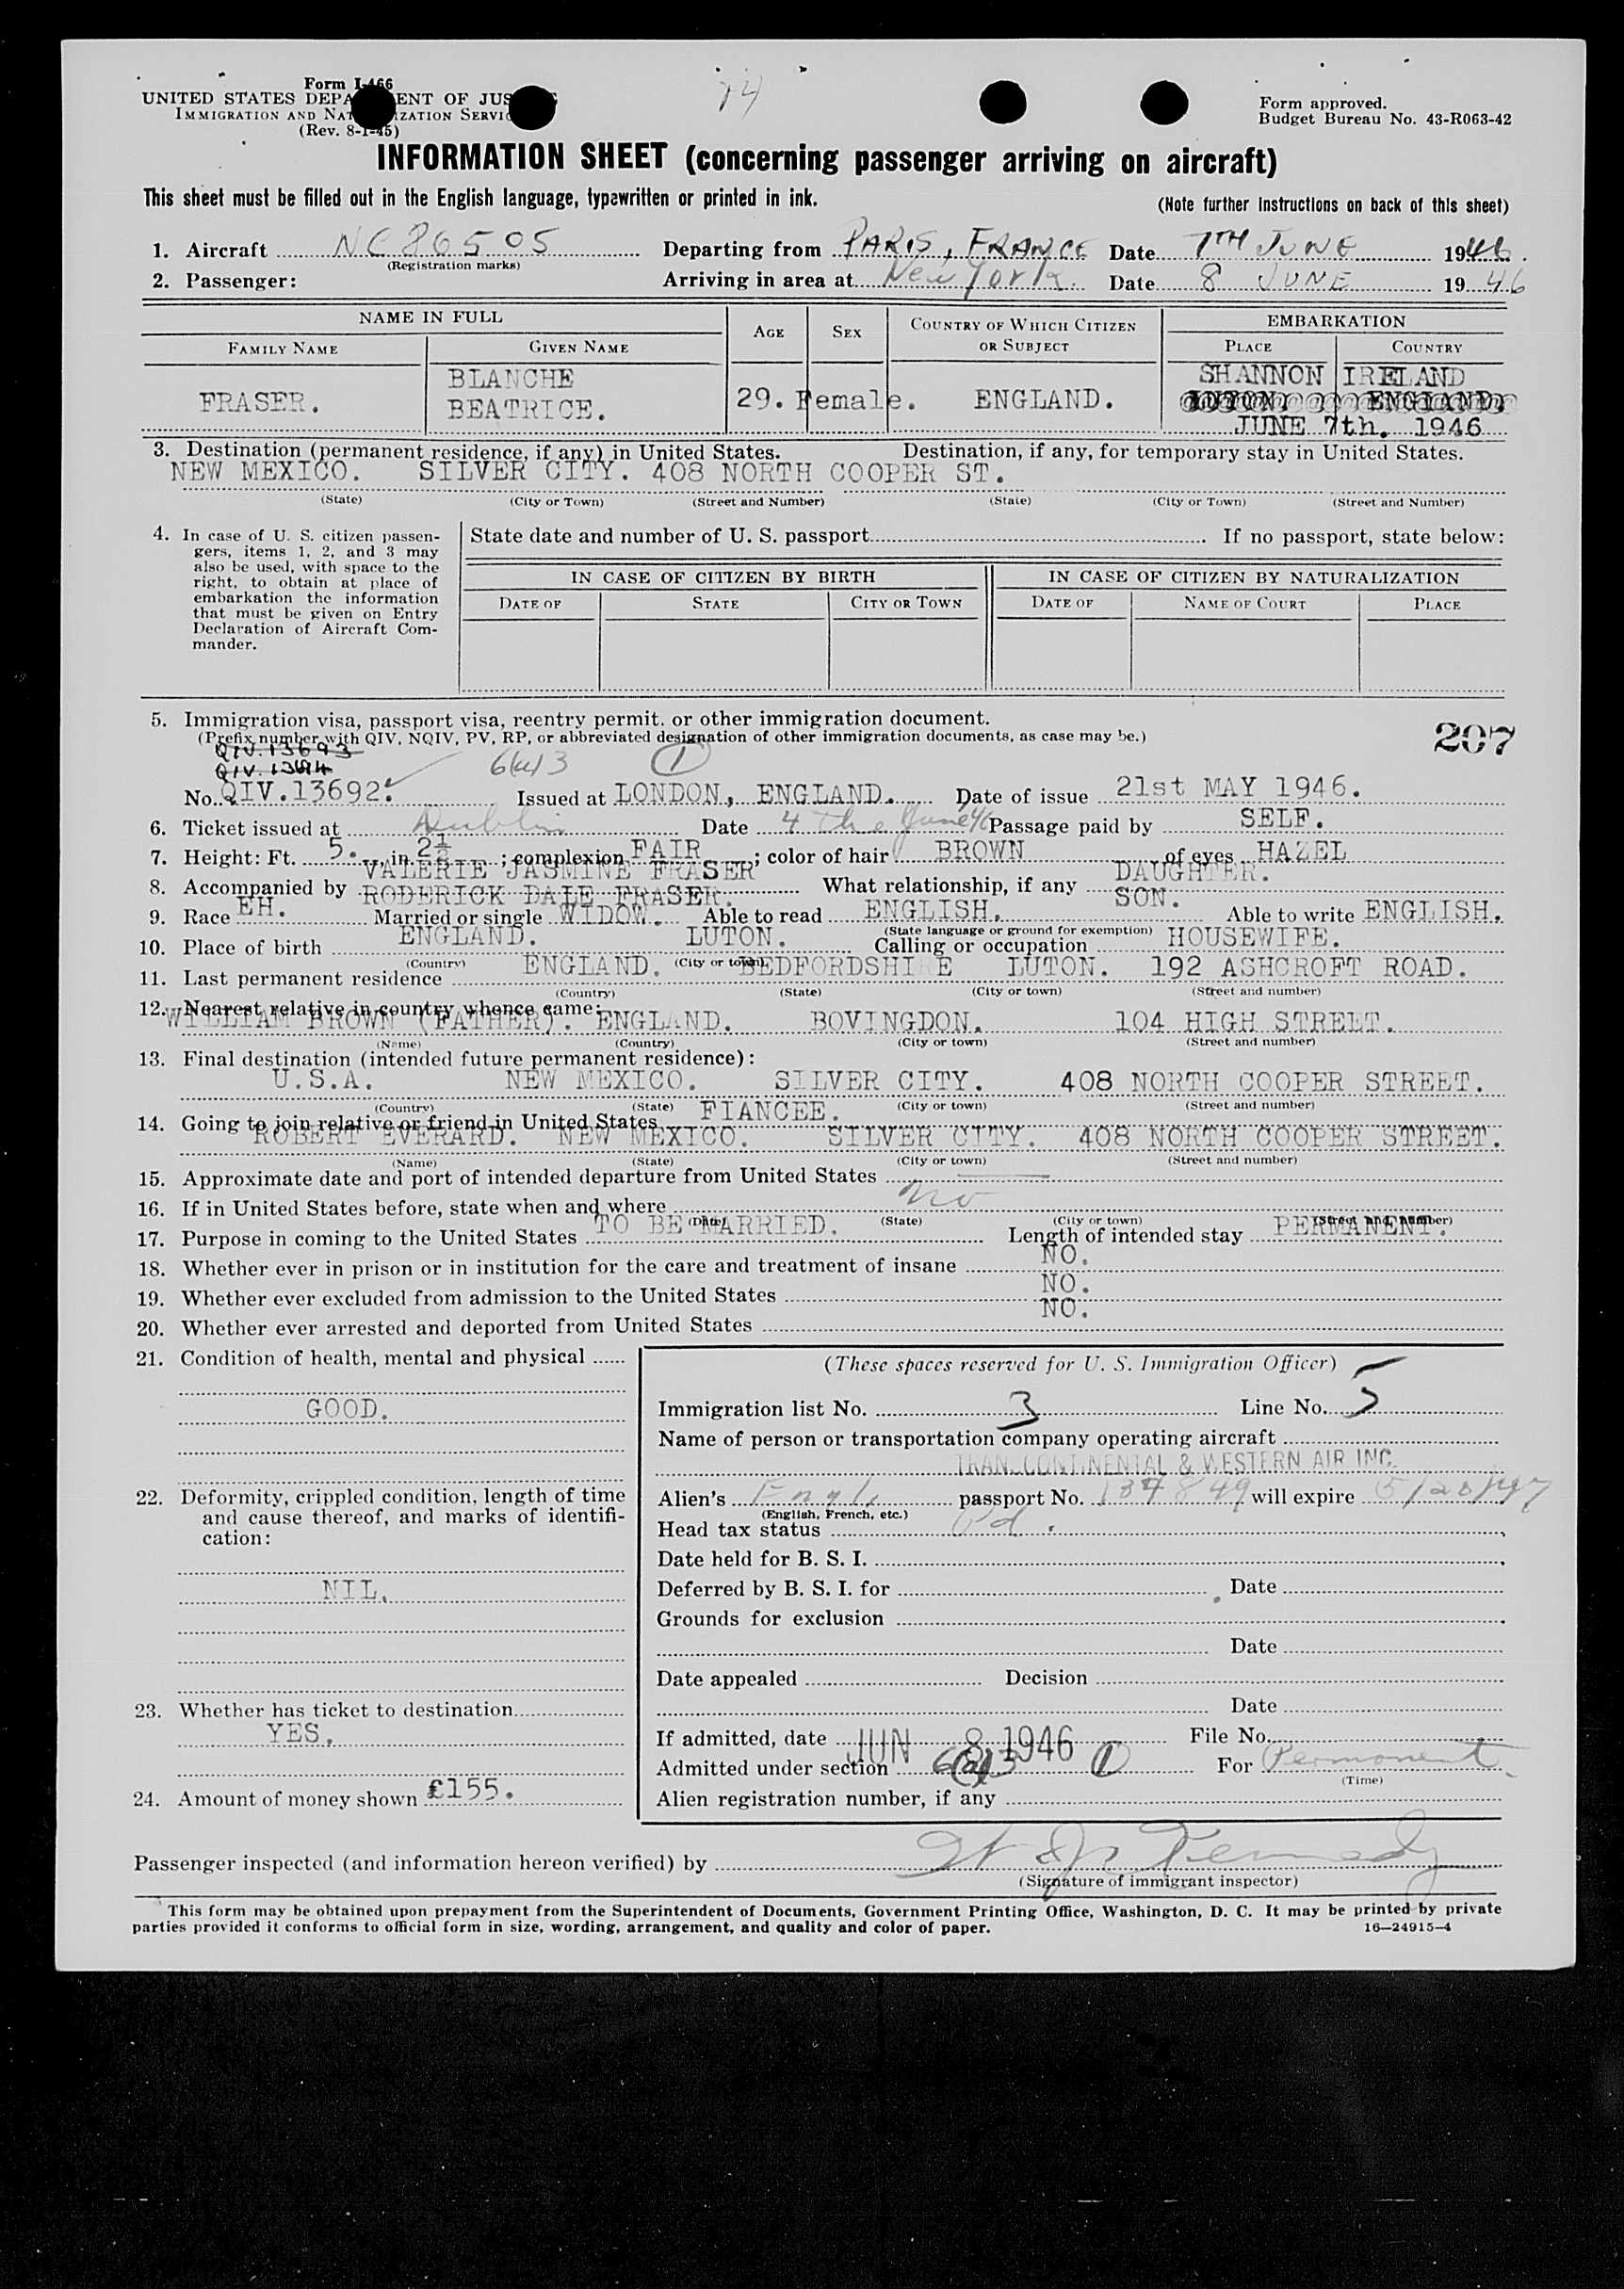 74
Form I-466
UNITED STATES DEPARTMENT OF JUSTICE
IMMIGRATION AND NATURALIZATION SERVICE
(Rev. 8-1-45)
Form approved.
Budget Bureau No. 43-R063-42
INFORMATION SHEET (concerning passenger arriving on aircraft)
This sheet must be filled out in the English language, typewritten or printed in ink.
(Note further instructions on back of this sheet)
1. Aircraft NC86505 Departing from PARIS, FRANCE Date 7TH JUNE 1946.
(Registration marks)
2. Passenger: Arriving in area at New York Date 8 JUNE 1946
NAME IN FULL AGE SEX COUNTRY OF WHICH CITIZEN OR SUBJECT EMBARKATION
FAMILY NAME GIVEN NAME PLACE COUNTRY
BLANCHE SHANNON IRELAND
FRASER. BEATRICE. 29. Female. ENGLAND. LUTON. ENGLAND.
JUNE 7th. 1946
3. Destination (permanent residence, if any) in United States. Destination, if any, for temporary stay in United States.
NEW MEXICO. SILVER CITY. 408 NORTH COOPER ST.
(State) (City or Town) (Street and Number) (State) (City or Town) (Street and Number)
4. In case of U. S. citizen passen-
gers, items 1, 2, and 3 may
also be used, with space to the
right, to obtain at place of
embarkation the information
that must be given on Entry
Declaration of Aircraft Com-
mander.
State date and number of U. S. passport If no passport, state below:
IN CASE OF CITIZEN BY BIRTH IN CASE OF CITIZEN BY NATURALIZATION
DATE OF STATE CITY OR TOWN DATE OF NAME OF COURT PLACE
5. Immigration visa, passport visa, reentry permit, or other immigration document.
(Prefix number with QIV, NQIV, PV, RP, or abbreviated designation of other immigration documents, as case may be.)
207
QIV.13693
QIV.13694 1
No. QIV.13692. Issued at LONDON, ENGLAND. Date of issue 21st MAY 1946.
6. Ticket issued at Dublin Date 4 the June 46 Passage paid by SELF.
7. Height: Ft. 5. , in 2½ ; complexion FAIR ; color of hair BROWN of eyes HAZEL
VALERIE JASMINE FRASER DAUGHTER.
8. Accompanied by RODERICK DALE FRASER. What relationship, if any SON.
9. Race EH. Married or single WIDOW. Able to read ENGLISH. Able to write ENGLISH.
(State language or ground for exemption)
10. Place of birth ENGLAND. LUTON. Calling or occupation HOUSEWIFE.
(Country) (City or town)
11. Last permanent residence ENGLAND. BEDFORDSHIRE LUTON. 192 ASHCROFT ROAD.
(Country) (State) (City or town) (Street and number)
12. Nearest relative in country whence came:
WILLIAM BROWN (FATHER). ENGLAND. BOVINGDON. 104 HIGH STREET.
(Name) (Country) (City or town) (Street and number)
13. Final destination (intended future permanent residence):
U.S.A. NEW MEXICO. SILVER CITY. 408 NORTH COOPER STREET.
(Country) (State) (City or town) (Street and number)
14. Going to join relative or friend in United States FIANCEE.
ROBERT EVERARD. NEW MEXICO. SILVER CITY. 408 NORTH COOPER STREET.
(Name) (State) (City or town) (Street and number)
15. Approximate date and port of intended departure from United States
16. If in United States before, state when and where no
(Date) (State) (City or town) (Street and number)
17. Purpose in coming to the United States TO BE MARRIED. Length of intended stay PERMANENT.
18. Whether ever in prison or in institution for the care and treatment of insane NO.
19. Whether ever excluded from admission to the United States NO.
20. Whether ever arrested and deported from United States NO.
21. Condition of health, mental and physical
GOOD.
22. Deformity, crippled condition, length of time
and cause thereof, and marks of identifi-
cation:
NIL.
23. Whether has ticket to destination
YES.
24. Amount of money shown £155.
(These spaces reserved for U. S. Immigration Officer)
Immigration list No. 3 Line No. 5
Name of person or transportation company operating aircraft
TRANSCONTINENTAL & WESTERN AIR INC.
Alien's Engl passport No. 137849 will expire 5/20/47
(English, French, etc.)
Head tax status Pd.
Date held for B. S. I.
Deferred by B. S. I. for Date
Grounds for exclusion
Date
Date appealed Decision
Date
If admitted, date JUN 8 1946 File No.
Admitted under section 6(a)3 1 For Permanent
(Time)
Alien registration number, if any
Passenger inspected (and information hereon verified) by Kennedy
(Signature of immigrant inspector)
This form may be obtained upon prepayment from the Superintendent of Documents, Government Printing Office, Washington, D. C. It may be printed by private
parties provided it conforms to official form in size, wording, arrangement, and quality and color of paper. 16—24915-4